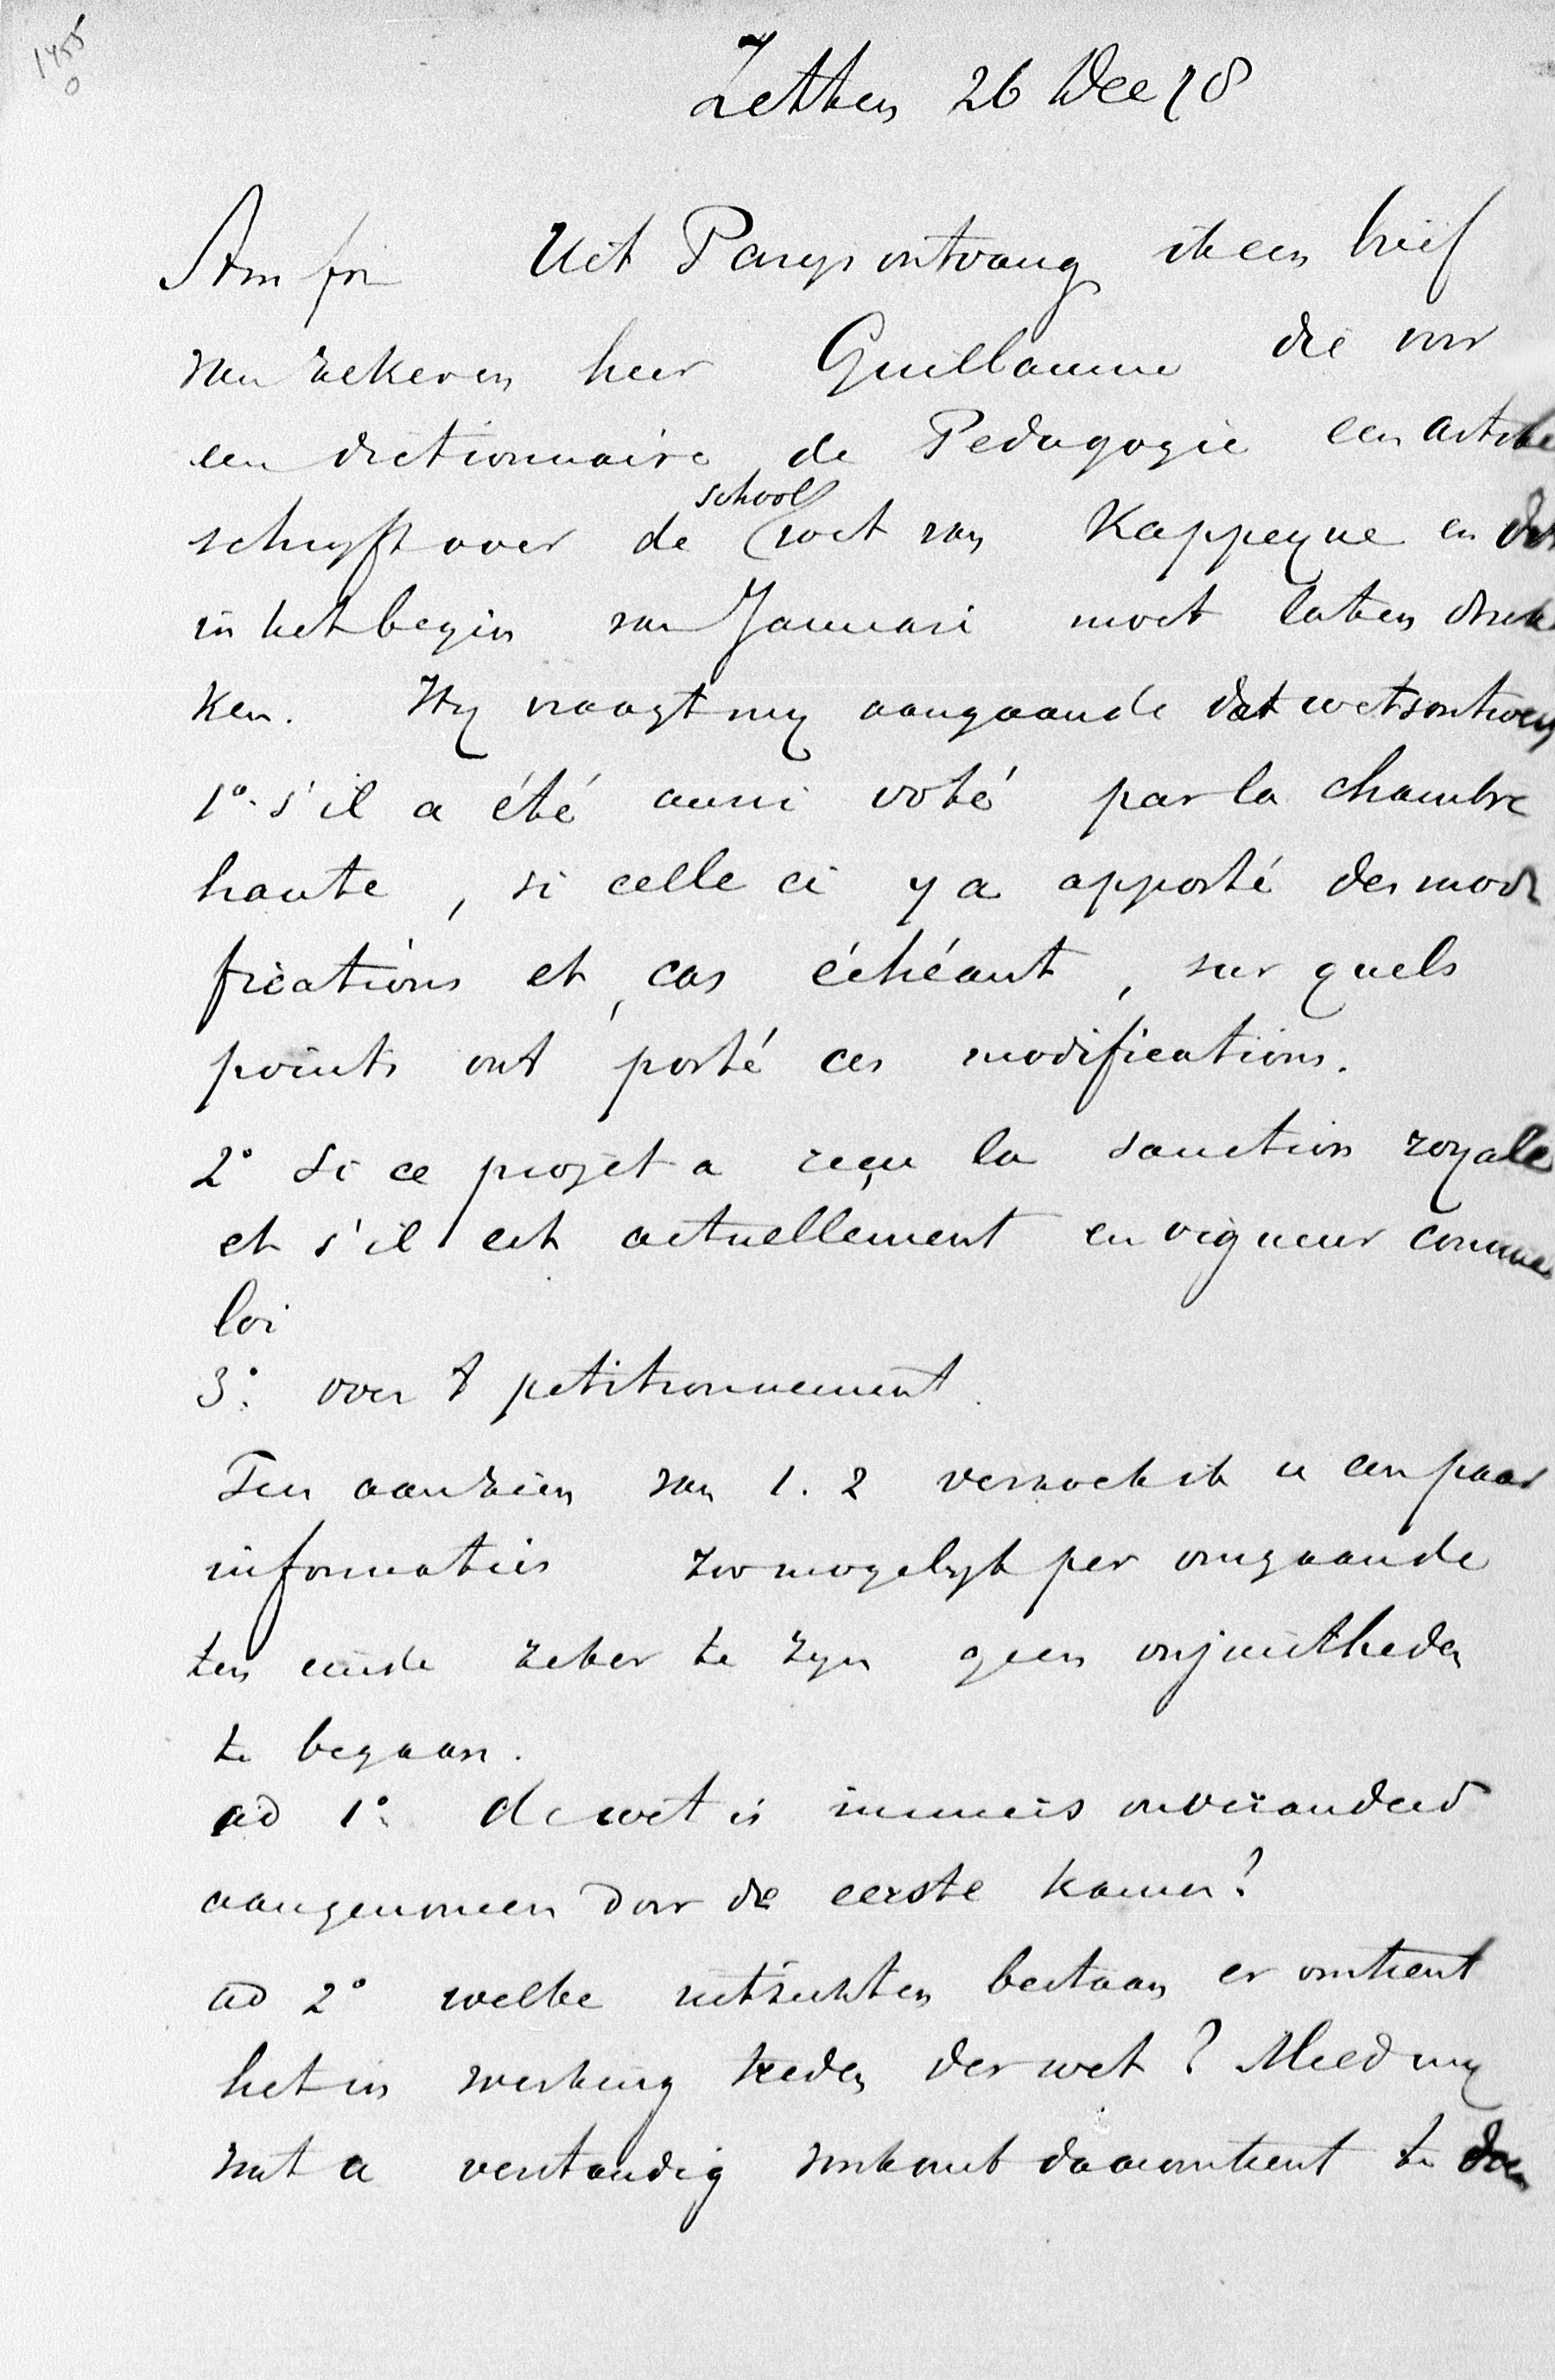 1455
0
Zetten 26 Dec 78
Am fr Uit Parys ontvang ik een brief
van zekeren heer Guillaume die voor
een dictionnaire de Pedagogie een artike
schryft over de schoolwet van Kappeyne en dat
in het begin van Januari moet laten druk
ken. Hy vraagt my aangaande dat wetsontwerp
1° s'il a été aussi voté par la chambre
haute, si celle ci y a apporté des modi
fications et, cas échéant, sur quels
points ont porté ces modifications.
2° Si ce projet a reçu la sanction royale
et s'il est actuellement en vigueur comme
loi
3° over 't petitionnement.
Ten aanzien van 1. 2 verzoek ik u een paar
informaties zoo mogelyk per omgaande
ten einde zeker te zyn geen onjuistheden
te begaan.
ad 1° de wet is immers onveranderd
aangenomen door de eerste kamer?
ad 2° welke uitzichten bestaan er omtrent
het in werking treden der wet? Meld my
wat u verstandig voorkomt daaromtrent te doen